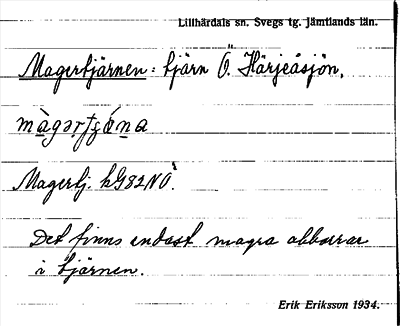 Lillhärdals sn. Svegs tg. Jämtlands län.
Magertjärnen: tjärn Ö. Härjeåsjön.
Magertj. kG82NÖ.
Det finns endast magra abborrar
i tjärnen.
Erik Eriksson 1934.